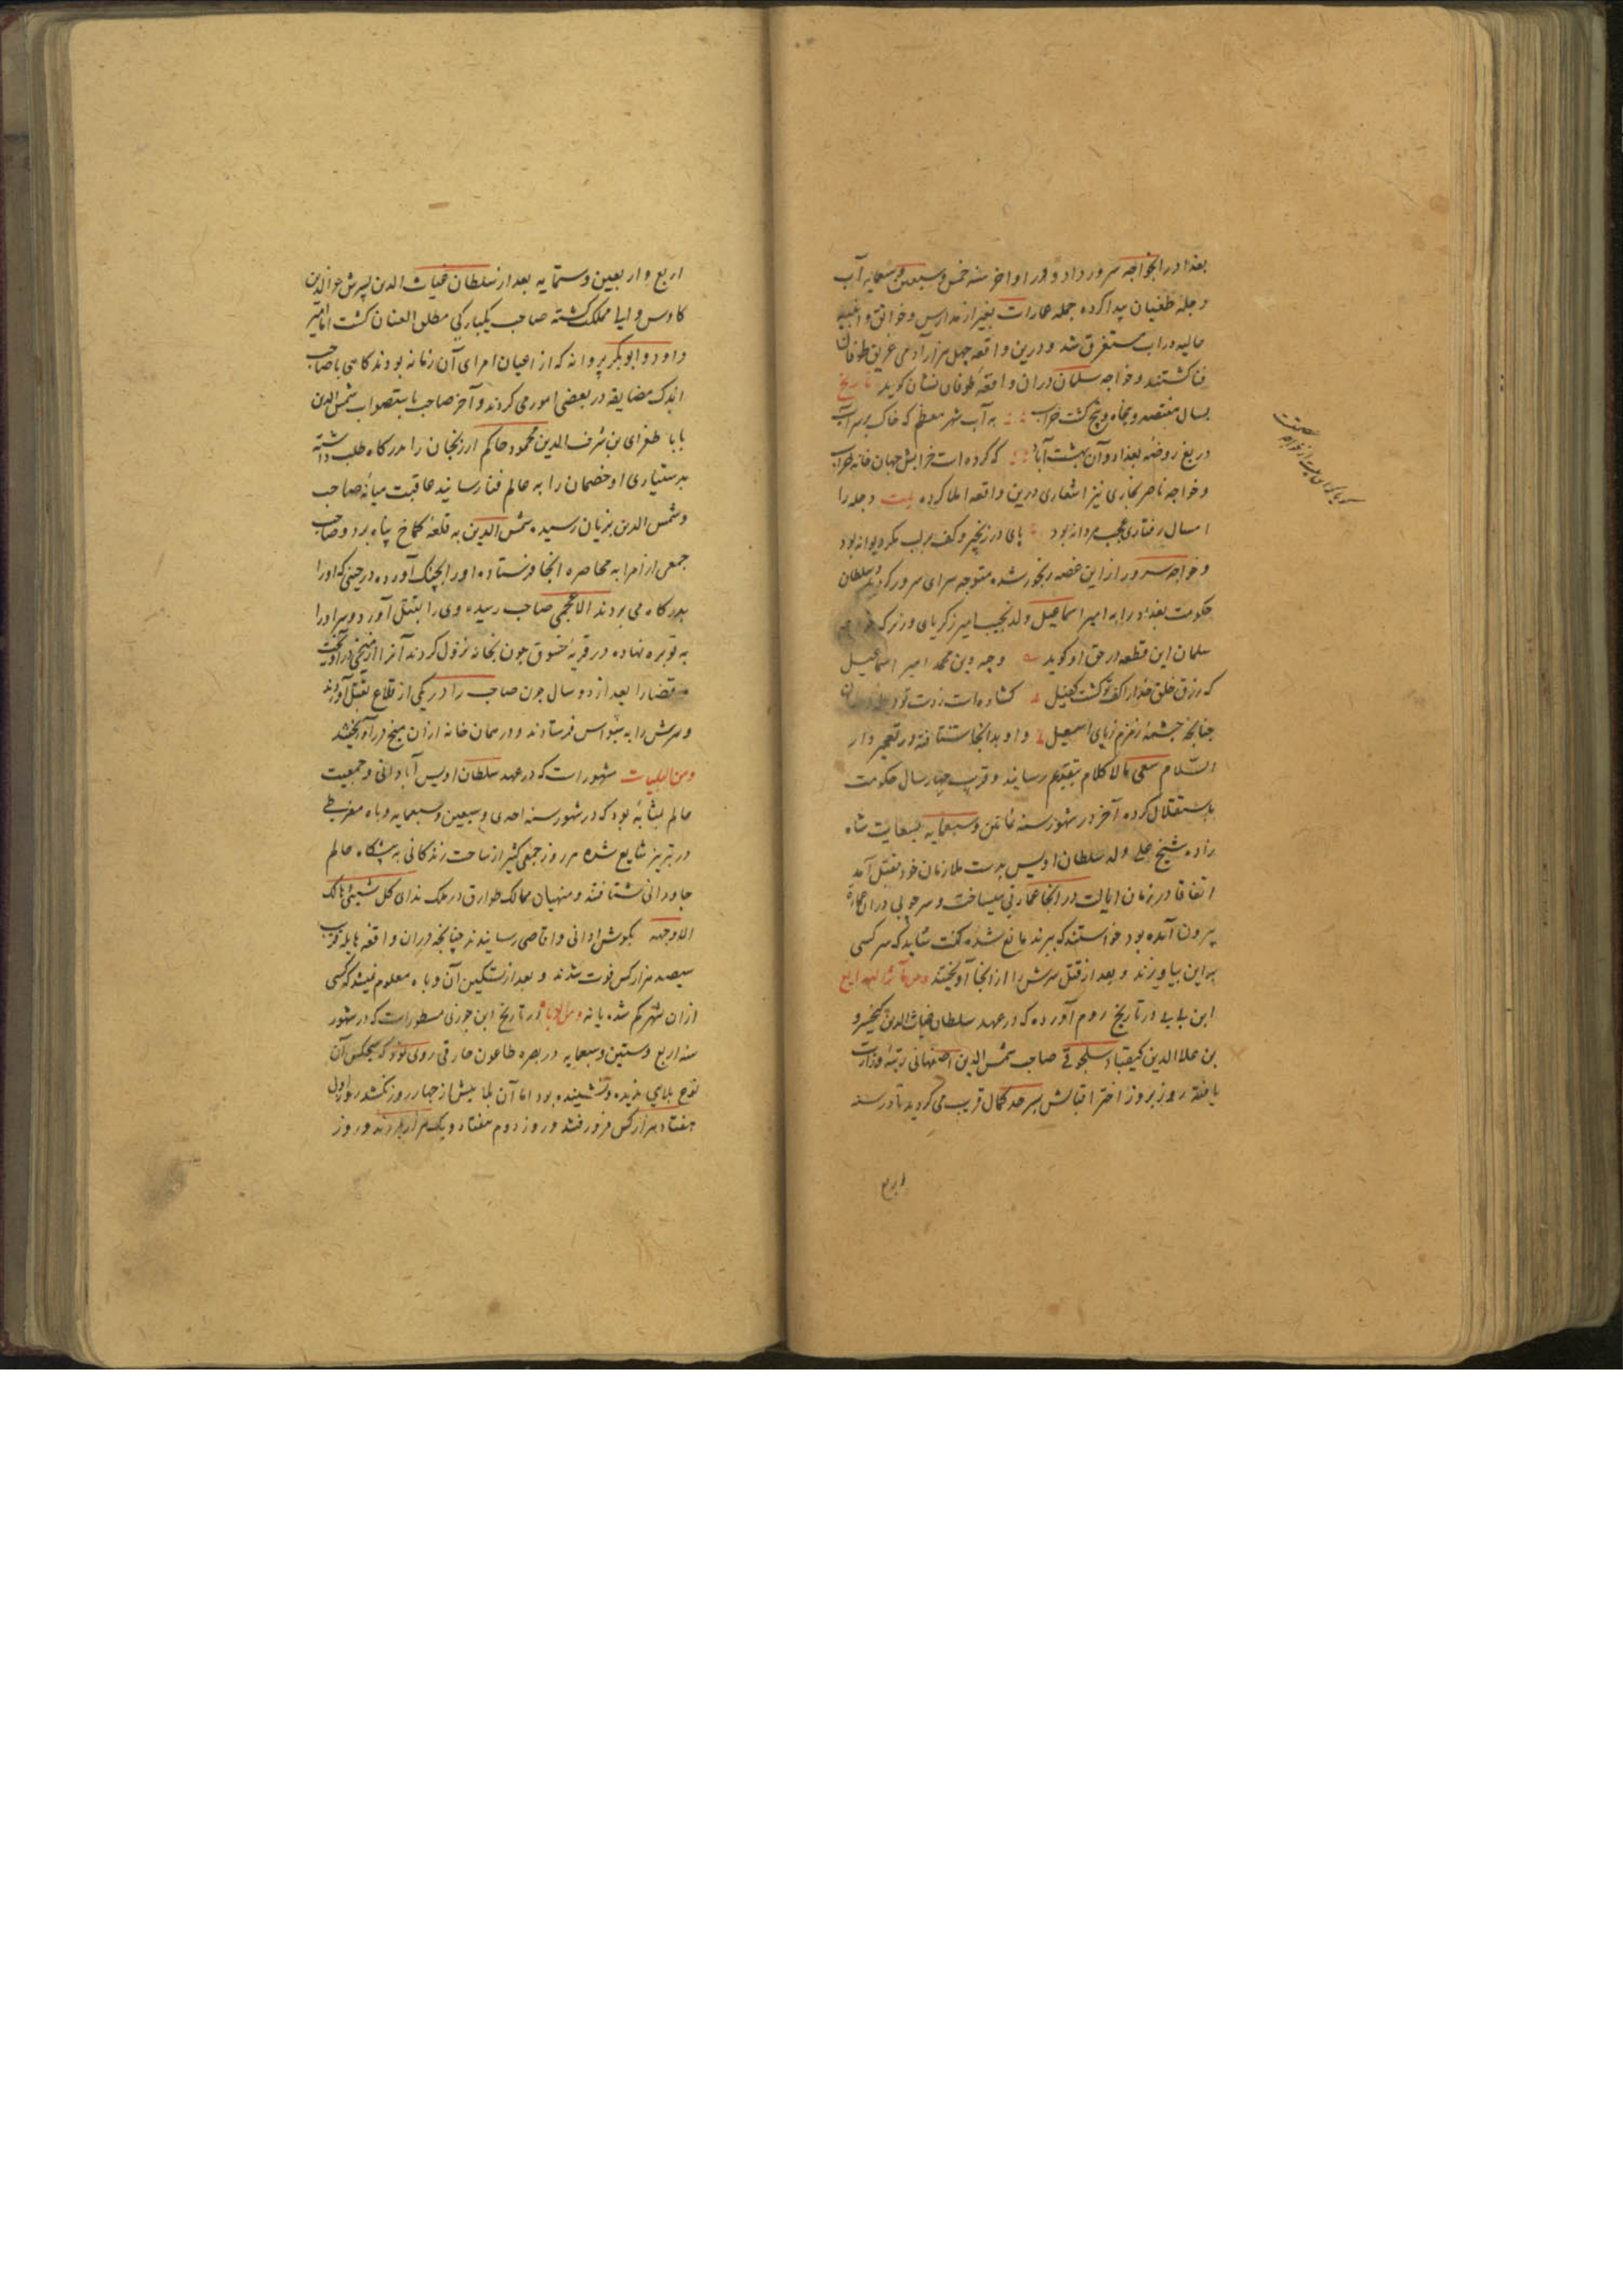 بغداد را بخواجه سرور داد و در اواخر سنه خمس و سبعین و سبعمایه آب
دجله طغیان پیدا کرده جمله عمارات بغیر از مدارس و خوانق و ابنیه
عالیه در آب مستغرق شد و درین واقعه چهل هزار آدمی غریق طوفان
فنا کشتند و خواجه سلمان در ان واقعه طوفان نشان کوید تاریخ
بسال هفتصد و پنجاه و پنج کشت خراب به آب شهر معظم که خاک بر سر آب
دریغ روضه بغداد و آن بهشت آباد که کرده است خرابش جهان خانه خراب
و خواجه ناصر بخاری نیز اشعاری درین واقعه املا کرده بیت دجله را
امسال رفتاری عجب مردانه بود پای در زنجیر و کف بر لب مکر دیوانه بود
و خواجه سرور از این غصه رنجور شده متوجه سرای سرور کردید و سلطان
حکومت بغداد را به امیر اسماعیل ولد نجیب امیر زکریای وزیر که خواجه
سلمان این قطعه در حق او کوید وجیه دین محمد امیر اسماعیل
که رزق خلق خدا را کف تو کشت کفیل کشاده است ز دست تو
چنانچه چشمه زمزم ز پای اسمعیل و او بدانجا شتافته در تعمیر دار
السلام سعی مالا کلام بتقدیم رسانید و قرب چهار سال حکومت
باستقلال کرده آخر در شهور سنه ثمانین و سبعمایه بسعایت شاه
زاده شیخ علی ولد سلطان اویس بدست ملازمان خود بقتل آمد
اتفاقا در زمان ایالت در انجا عمارتی میساخت و سر چوبی در ان عماره
بیرون آمده بود خواستند که ببرند مانع شده کفت شاید که سر کسی
براین بیاویزند و بعد از قتل سرش را از انجا آویختند
ابن بی بی در تاریخ روم آورده که در عهد سلطان غیاث الدین کیخسرو
بن علاالدین کیقباد سلجوقی صاحب شمس الدین اصفهانی رتبه وزارت
یافته روز بروز اختر اقبالش بسرحد کمال قریب می کردید تا در سنه
اربع
اربع و اربعین و ستمایه بعد از سلطان غیاث الدین پسرش عزالدین
کاوس والی مملکت کشته صاحب یکبارکی مطلق العنان کشت اما امیر
داود و ابوبکر پروانه که از اعیان امرای آن زمانه بودند کاهی با صاحب
اندک مضایقه در بعضی امور می کردند و آخر صاحب باستصواب شمس الدین
بابا طغرای بن شرف الدین محمود حاکم ارزنجان را بدرکاه طلب داشته
بدستیاری او خصمان را به عالم فنا رسانید عاقبت میانه صاحب
و شمس الدین بزیان رسیده شمس الدین به قلعه کماخ پناه برد و صاحب
جمعی از امرا به محاصره انجا فرستاده او را بچنک آورده در حینی که او را
بدرکاه می بردند صاحب رسیده وی را بقتل آورد و سر او را
به توبره نهاده در قریه خسوق چون بخانه نزول کردند آنرا از میخی در آویخت
قضا را بعد از دو سال چون صاحب را در یکی از قلاع بقتل آوردند
و سرش را به سیواس فرستادند و در همان خانه از ان میخ در آویختند
و من البلیات مشهور است که در عهد سلطان اویس آبادانی و جمعیت
عالم بمثابه بود که در شهور سنه احدی و سبعین و سبعمایه وباء مفرطی
در تبریز شایع شده هر روز جمعی کثیر از ساحت زندکانی به پیشکاه عالم
جاودانی شتافتند و منهیان ممالک طوارق در ملک ندای کل شیئ هالک
الا وجهه بکوش ادانی و اقاصی رسانیدند چنانچه در ان واقعه هایله قرب
سیصد هزار کس فوت شدند و بعد از تسکین آن وباء معلوم نمیشد که کسی
از ان شهر کم شده یا نه و من الوبا در تاریخ ابن جوزی مسطور است که در شهور
سنه اربع و ستین و سبعمایه در بصره طاعون جارفی روی نمود که هیچکس آن
نوع بلایی ندیده و نشنیده بود اما آن بلا بیش از چهار روز نکشد روز اول
هفتاد هزار کس فرو رفتند و روز دوم هفتاد و یک هزار بمردند و روز